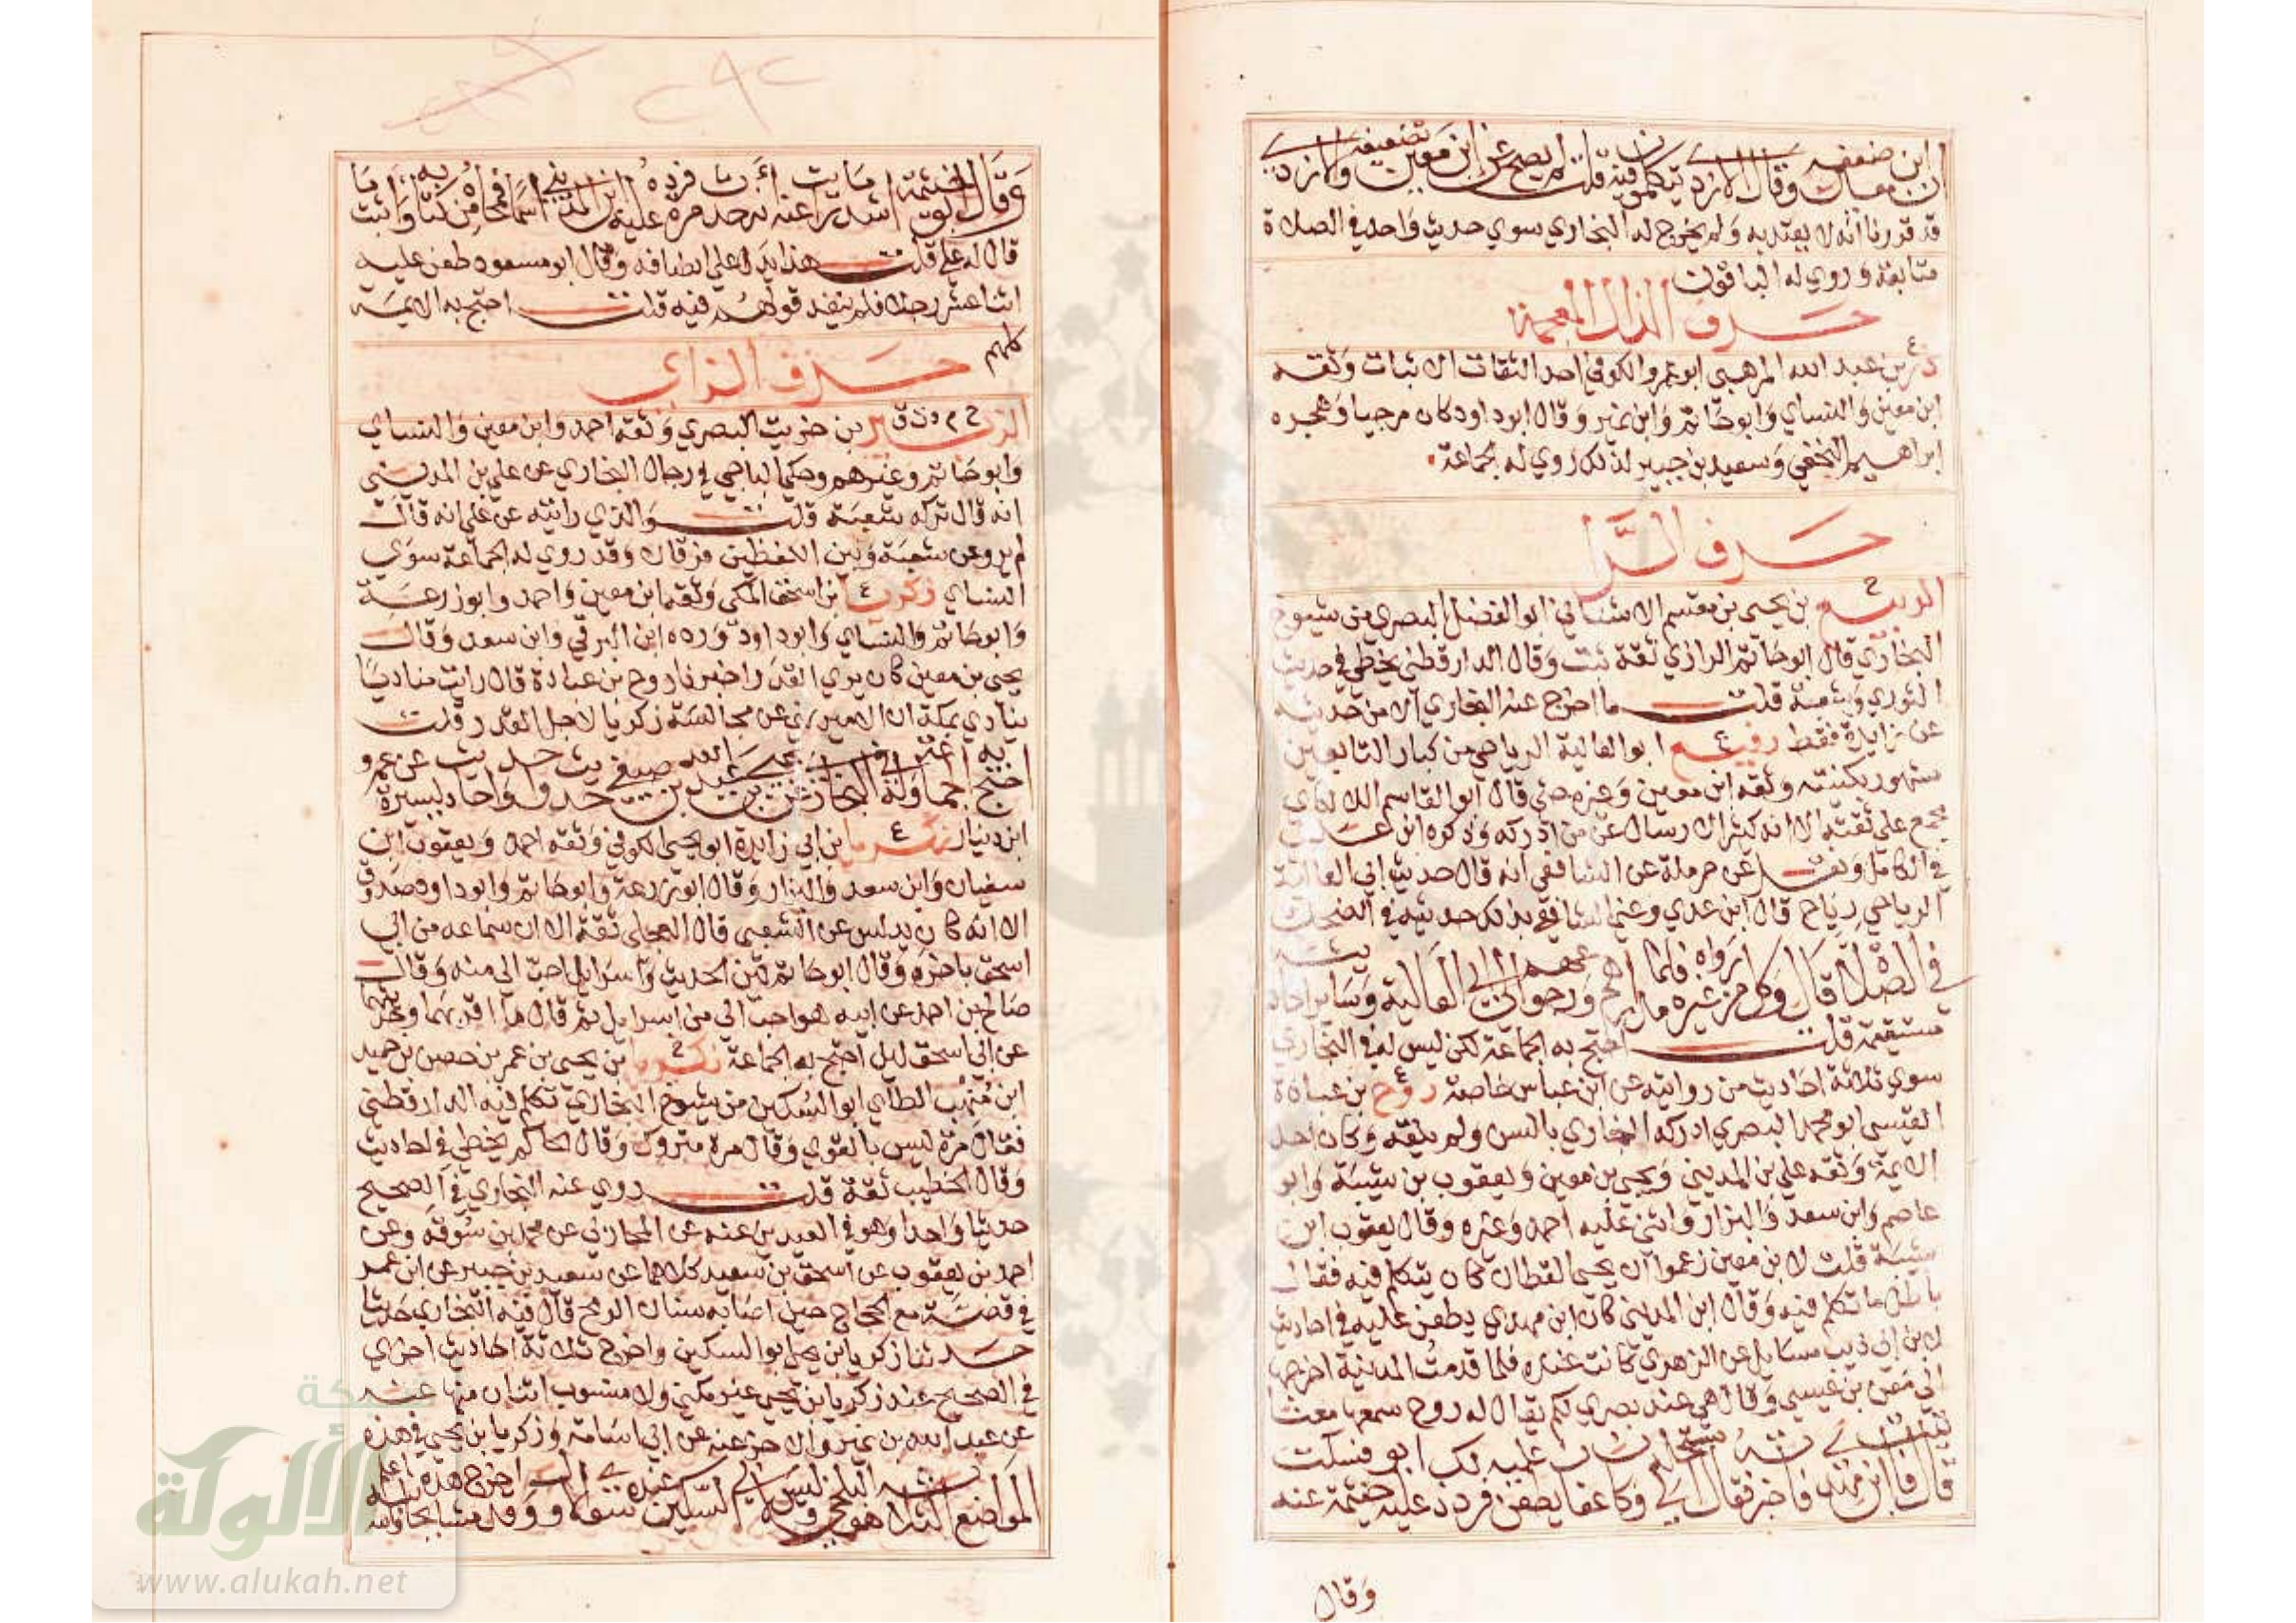 ابن معين ضعفه وقال الازدي يتكلمون فيه قلت لم يصح عن ابن معين تضعيفه والازدي
قد قررنا انه لا يعتد به ولم يخرج له البخاري سوي حديث واحد في الصلاة
متابعة وروي له الباقون
حرف الذال المعجمة
ذر بن عبد الله المرهبي ابو عمرو الكوفي احد الثقات الاثبات وثقه
ابن معين والنساي وابو حاتم وابن نمير وقال ابو داود كان مرجيا وهجره
ابراهيم النخعي وسعيد بن جبير لذلك روي له الجماعة
حرف الرا
الربيع خ بن يحيي بن مقسم الاشناني ابو الفضل البصري من شيوخ
البخاري قال ابو حاتم الرازي ثقة ثبت وقال الدارقطني يخطي في حديث
الثوري وشعبة قلت ما اخرج عنه البخاري الا من حديثه
عن زايدة فقط رفيع ع ابو العالية الرياحي من كبار التابعين
مشهور بكنيته وثقه ابن معين وغيره حتي قال ابو القاسم اللالكاي
مجمع علي ثقته الا انه كثير الارسال عن من ادركه وذكره ابن عدي
في الكامل ونقل عن حرملة عن الشافعي انه قال حديث ابي العالية
الرياحي رياح قال ابن عدي وعني الشافعي بذلك حديثه في الضحك
في الصلاة قال وكل من رواه غيره فانما مدارهم ورجوعهم الي ابي العالية وساير احاديثه
مستقيمة قلت احتج به الجماعة لكن ليس له في البخاري
سوي ثلاثة احاديث من روايته عن ابن عباس خاصة روح ع بن عبادة
القيسي ابو محمد البصري ادركه البخاري بالسن ولم يلقه وكان احد
الايمة وثقه علي بن المديني ويحيي بن معين ويعقوب بن شيبة وابو
عاصم وابن سعد والبزار واثني عليه احمد وغيره وقال يعقوب ابن
شيبة قلت لابن معين زعموا ان يحيي القطان كان يتكلم فيه فقال
باطل ما تكلم فيه وقال ابن المديني كان ابن مهدي يطعن عليه في احاديث
لابن ابي ذيب مسايل عن الزهري كانت عنده فلما قدمت المدينة اخرجها
الي معن بن عيسي وقال هي عند بصري لكم يقال له روح سمعها معنا
قال فاتيت ابن مهدي فاخبرته فقال استحله لي وكان عفان يطعن عليه فرد ذلك عليه ابو خيثمة فسكت عنه
وقال
وقال ابو خيثمة
قال له علي قلت هذا يدل علي انصافه وقال ابو مسعود طعن عليه
اثنا عشر رجلا فلم ينفذ قولهم فيه قلت احتج به الايمة
كلهم
حرف الزاي
الزبير خ م د ت ق بن خريت البصري وثقه احمد وابن معين والنساي
وابو حاتم وغيرهم وحكي الباجي في رجال البخاري عن علي بن المديني
انه قال تركه شعبة قلت والذي رايته عن علي انه قال
لم يرو عن شعبة وبين اللفظين فرقان وقد روي له الجماعة سوي
النساي زكريا ع بن اسحق المكي وثقه ابن معين واحمد وابو زرعة
وابو حاتم والنساي وابو داود ورده ابن البرقي وابن سعد وقال
يحيي بن معين كان يري القدر اخبرنا روح بن عبادة قال رايت مناديا
ينادي بمكة ان الامير نهي عن مجالسة زكريا لاجل القدر قلت
احتج به الجماعة وله في البخاري عن يحيي بن عبد الله بن صيفي حديث واحد واحاديث يسيرة عن عمرو
ابن دينار زكريا ع بن ابي زايدة ابو يحيي الكوفي وثقه احمد ويعقوب ابن
سفيان وابن سعد والبزار وقال ابو زرعة وابو حاتم وابو داود صدوق
الا انه كان يدلس عن الشعبي قال العجلي ثقة الا ان سماعه من ابي
اسحق باخره وقال ابو حاتم لين الحديث واسرايل احب الي منه وقال
صالح بن احمد عن ابيه هو احب الي من اسرايل ثم قال ما اقربهما وحديثهما
عن ابي اسحق لين احتج به الجماعة زكريا خ بن يحيي بن عمر بن حصن بن حميد
ابن منهب الطاي ابو السكين من شيوخ البخاري تكلم فيه الدارقطني
فقال مرة ليس بالقوي وقال مرة متروك وقال الحاكم يخطي في احاديث
وقال الخطيب ثقة قلت روي عنه البخاري في الصحيح
حديثا واحدا وهو في العيدين عنه عن المحاربي عن محمد بن سوقه وعن
احمد بن يعقوب عن اسحق بن سعيد كلاهما عن سعيد بن جبير عن ابن عمر
في قصته مع الحجاج حين اصابه سنان الرمح قال فيه البخاري حدثنا
حدثنا زكريا ابن يحيي ابو السكين واخرج ثلاثة احاديث اخري
في الصحيح عند زكريا ابن يحيي غير مكني ولا منسوب اثنان منها عنه
عن عبد الله بن نمير والاخر عنه عن ابي اسامة وزكريا ابن يحيي في هذه
المواضع الثلاثة هو البلخي وليس
شبكة
الألوكة
www.alukah.net